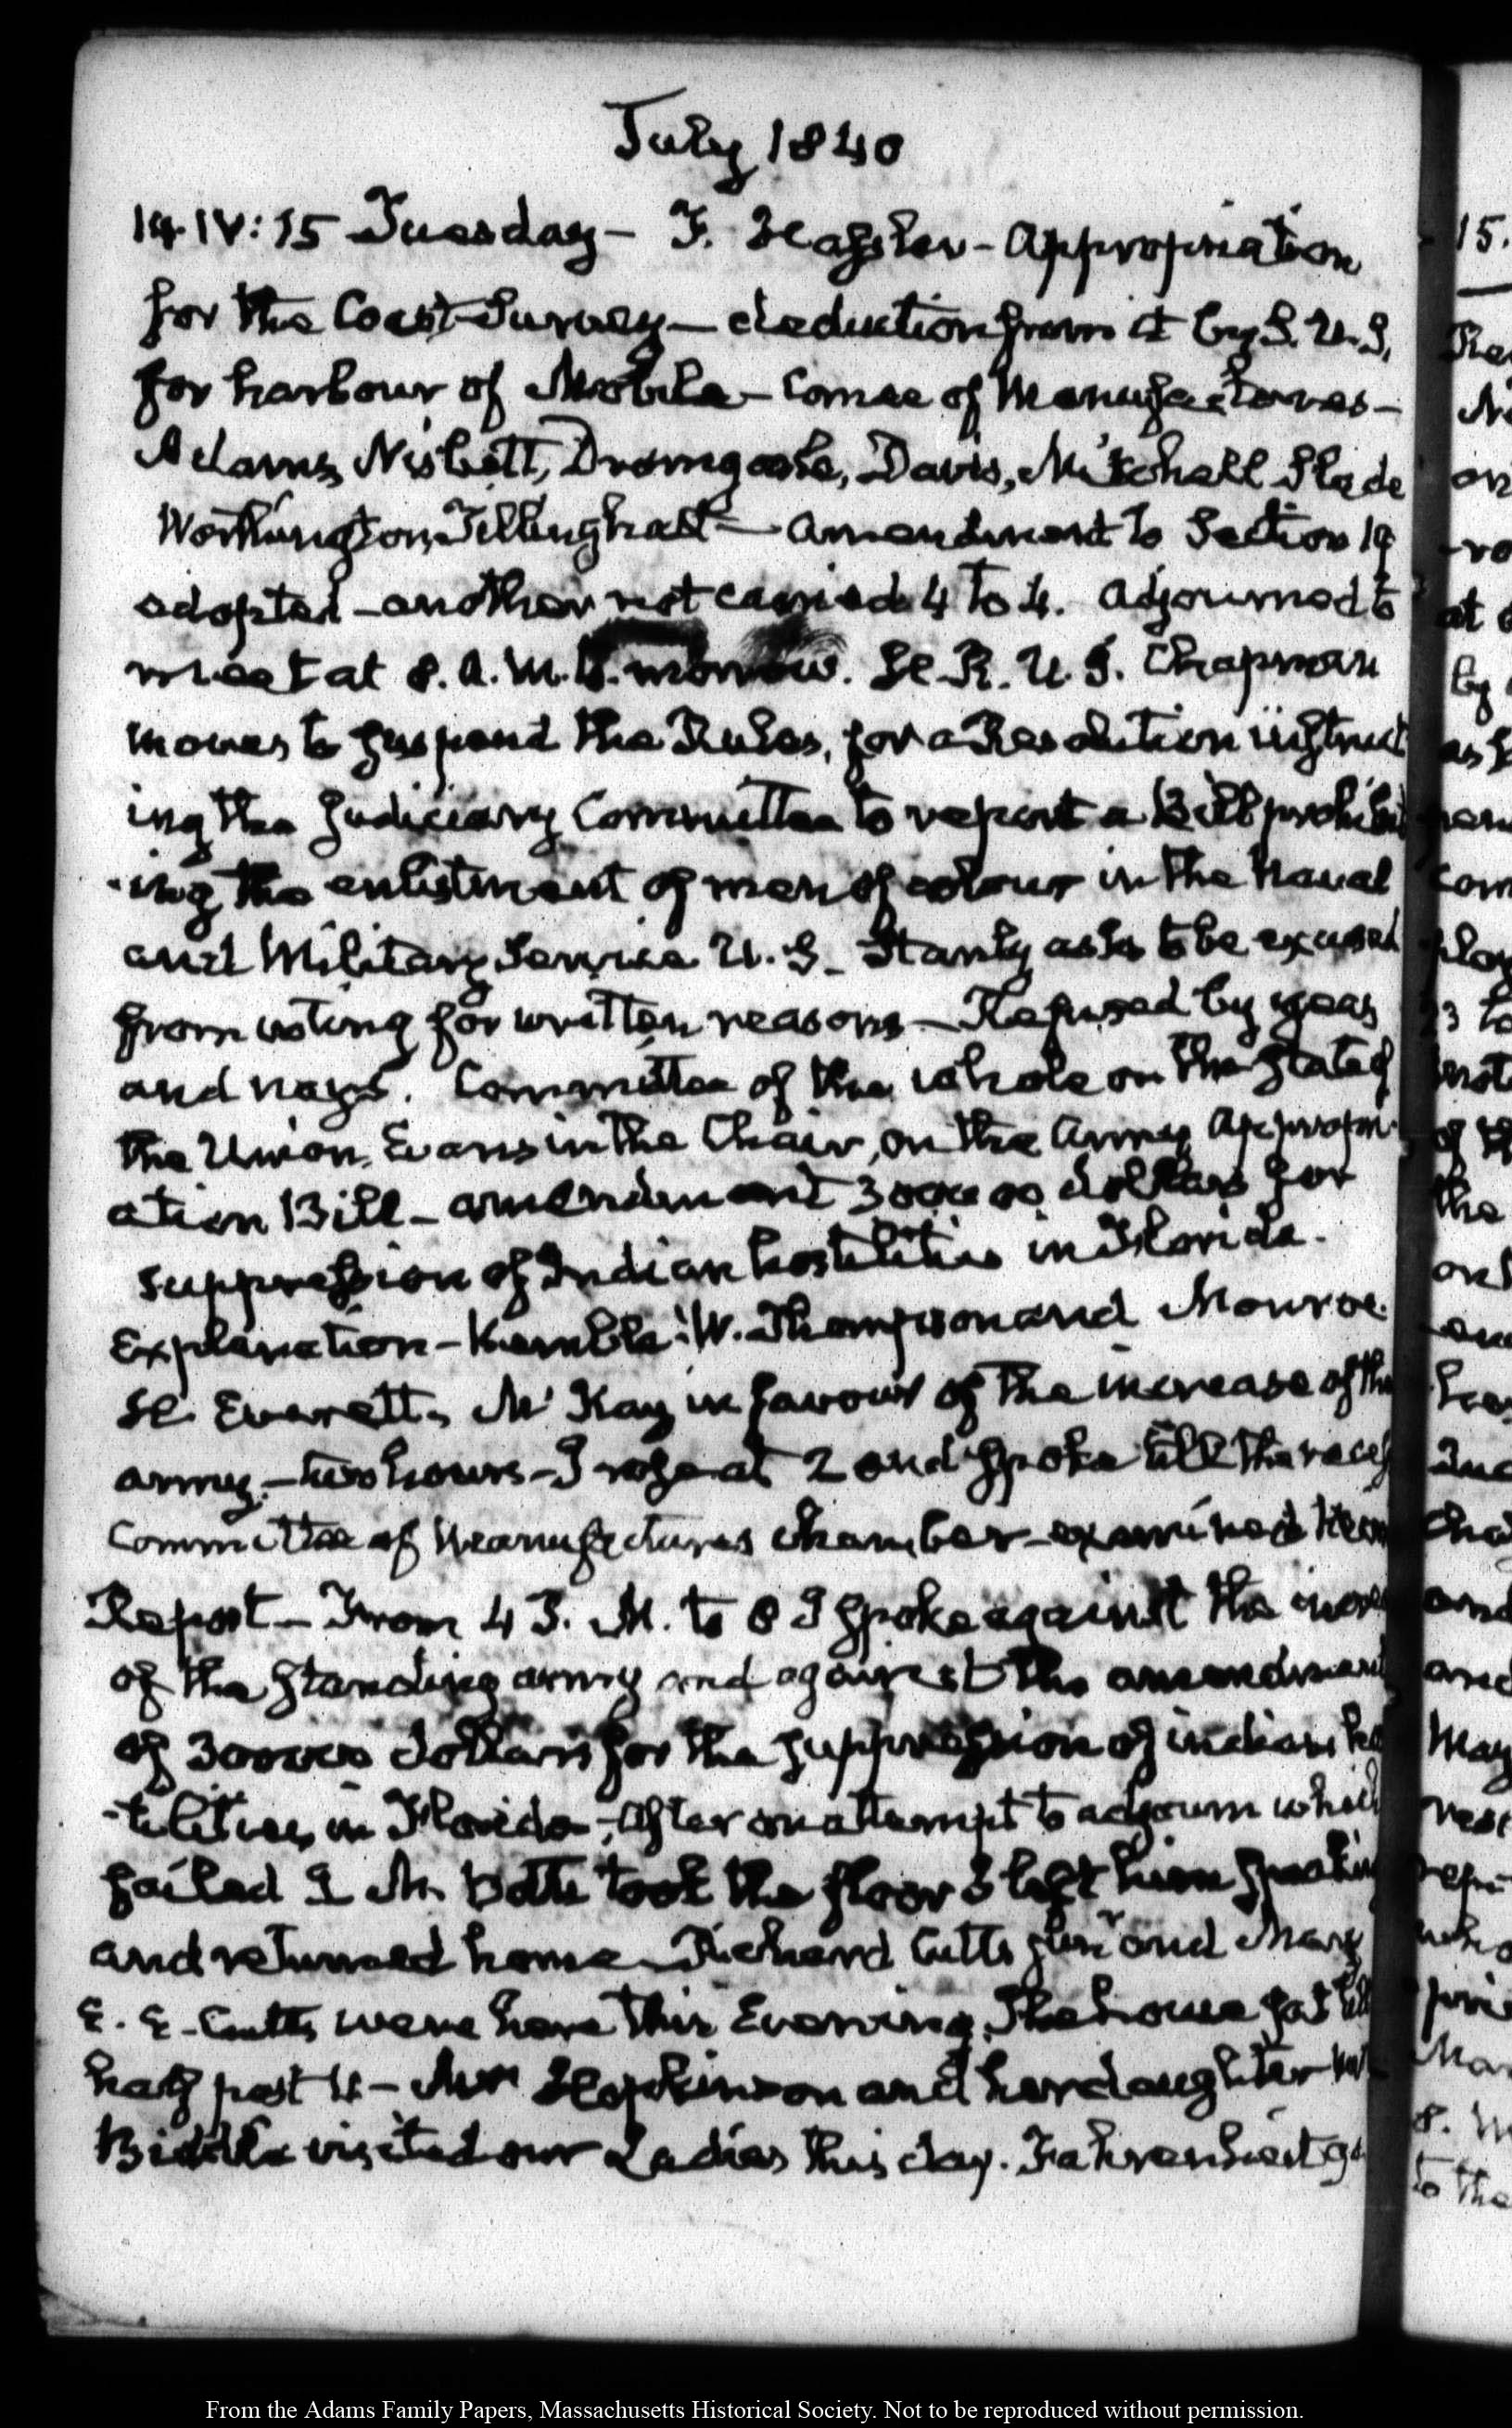 July 1840
14. IV:15 Tuesday – F. Hassler – Appropriation
for the Coast Survey – deduction from it by S. U.S.
for harbour of Mobile – Comee of Manufactures –
Adams, Nisbett, Dromgoole, Davis, Mitchell Slade
Worthington, Tillinghast – amendment to Section 19
adopted – another not carried 4 to 4. adjourned to
meet at 8. A.M. to.morrow. H.R.U.S. Chapman
moves to suspend the Rules, for a Resolution instruct
ing the Judiciary Committee to report a Bill prohibit
-ing the enlistment of men of colour in the Naval
and Military Service U.S. Stanly asks to be excused
from voting for written reasons – Refused by yeas
and nays. Committee of the whole on the State of
the Union, Evans in the Chair, on the Army Appropri-
ation Bill – amendment 300000 dollars for
suppression of Indian hostilities in Florida.
Explanation – Kemble: W. Thompson and Monroe.
H. Everett. McKay in favour of the increase of the
army. – two hours – I rose at 2 and spoke till the recess
Committee of Manufactures chamber – examined
Report – From 4 P.M. to 6 I spoke against the
of the standing army and against the amendment
of 300000 dollars for the suppression of indian hos
-tilities in Florida – After an attempt to adjourn which
failed J. M. Botts took the floor I left him speaking
and returned home – Richard Cutts junr and Mary
E. E. Cutts were here this Evening. The house sat till
half past 11 – Mrs Hopkinson and her daughter
Biddle visited our Ladies this day. Fahrenheit
15.
From the Adams Family Papers, Massachusetts Historical Society. Not to be reproduced without permission.